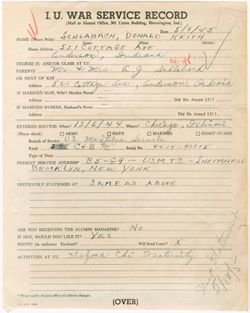 I. U. WAR SERVICE RECORD
(Mail to Alumni Office, 303 Union Building, Bloomington, Ind.)
DATE 5/9/45
NAME (Please Print) SCHLABACH, DONALD KEITH
HOME ADDRESS 521 COTTAGE AVE
Anderson, Indiana
DEGREE(S) AND/OR CLASS AT I.U.
PARENTS Mr & Mrs A. J. Schlabach
OR NEXT OF KIN
521 Cottage Ave, Anderson, Indiana
IF MARRIED MAN, Wife's Maiden Name
Did She Attend I.U.?
IF MARRIED WOMAN, Husband's Name
Did He Attend I.U.?
ENTERED SERVICE: When 12/6/44 Where Chicago, Illinois
(Please check) ARMY NAVY MARINES COAST GUARD
Branch of U.S. Maritime Service
Serial No.
PRESENT SERVICE ADDRESS B5-G9 - USMTS - SHEEPSHEAD
BROOKLYN, NEW YORK
PREVIOUSLY STATIONED AT SAME AS ABOVE
ARE YOU RECEIVING THE ALUMNI MAGAZINE? NO
IF NOT, WOULD YOU LIKE IT? YES
PHOTO (in uniform) Enclosed? Will Send Later? X
ACTIVITIES AT I.U. Sigma Chi Fraternity
(OVER)